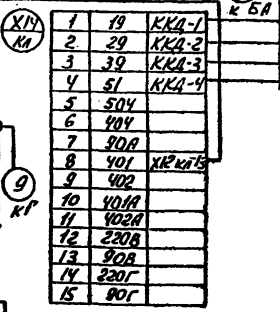 к БА
Х14
Кл
1 19 ККД-1
2 29 ККД-2
3 39 ККД-3
4 51 ККД-4
5 504
6 404
7 90А
8 401
9 402
10 401А
11 402А
12 220В
13 90В
14 220Г
15 90Г
9
кГ